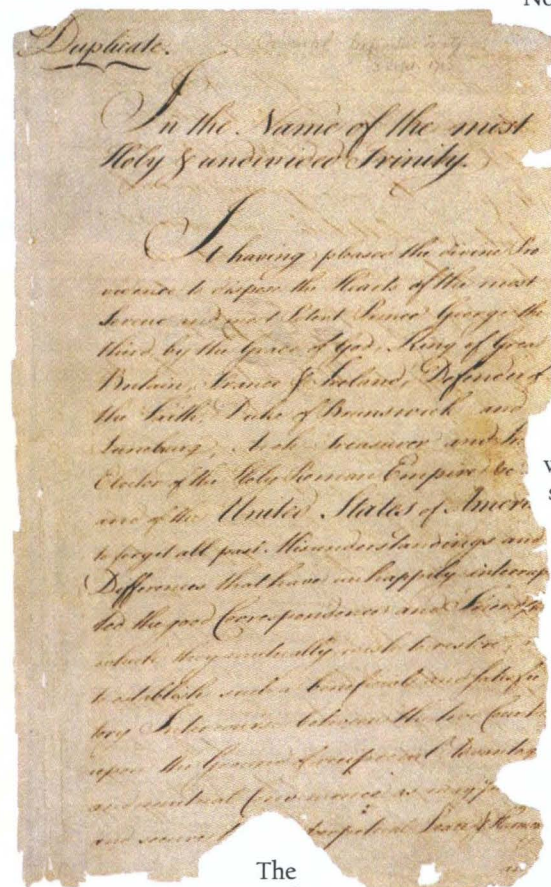 No
Duplicate.
In the Name of the most
Holy & undivided Trinity.
It having pleased the divine Pro
vidence to dispose the Hearts of the most
Serene and most Potent Prince George the
third, by the Grace of God, King of Grea
Britain, France & Ireland, Defender of
the Faith, Duke of Brunswick and
Lunebourg, Arch Treasurer and
Elector of the Holy Roman Empire &c
and of the United States of Ameri
to forget all past Misunderstandings and
Differences that have unhappily interrup
ted the good Correspondence and Friendsh
which they mutually wish to restore;
to establish such a beneficial and satisfac
tory Intercourse between the two Count
upon the Ground of reciprocal Advantag
and mutual Convenience as may
and secure perpetual Peace & Harmon
The